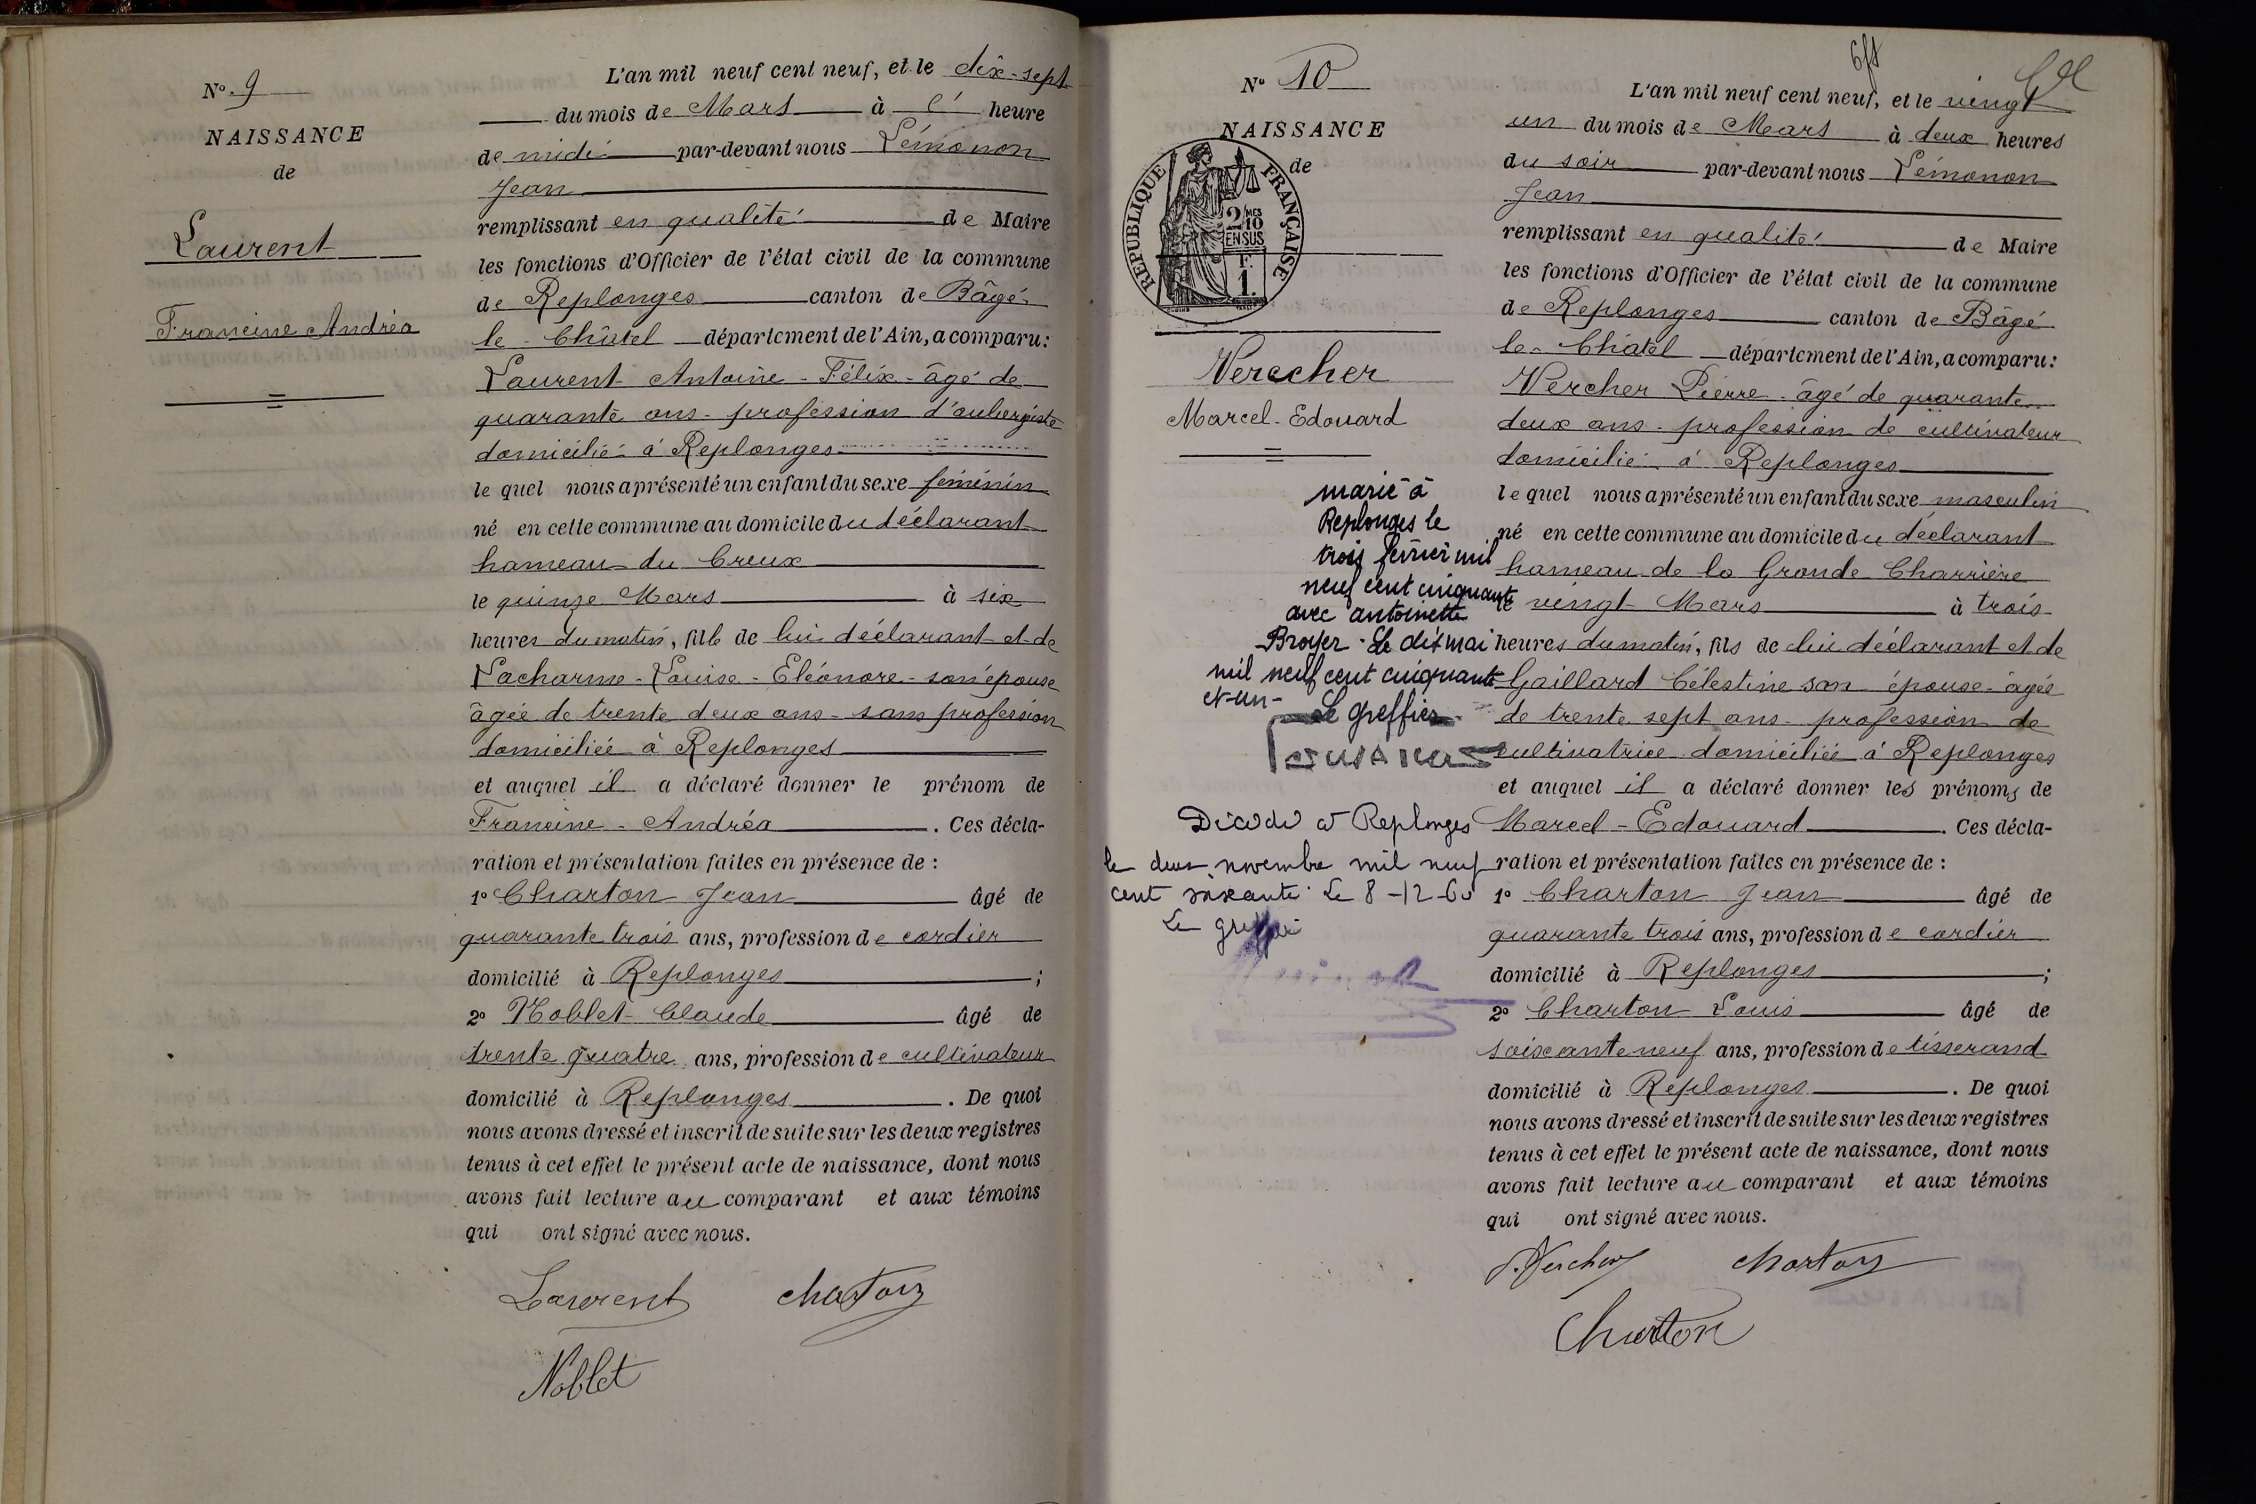 Nº 9
NAISSANCE
de
Laurent
Francine Andréa
L'an mil neuf cent neuf, et le dix-sept
du mois de Mars à l' heure
de midi par-devant nous Lémonon
Jean
remplissant en qualité de Maire
les fonctions d'Officier de l'état civil de la commune
de Replonges canton de Bâgé
le-Châtel département de l'Ain, a comparu:
Laurent Antoine-Félix-âgé de
quarante ans-profession d'aubergiste
domicilié à Replonges
le quel nous a présenté un enfant du sexe féminin
né en cette commune au domicile du déclarant
hameau du Creux
le quinze Mars à six
heures du matin, fille de lui déclarant et de
Lacharme-Louise-Eléonore-son épouse
âgée de trente deux ans-sans profession
domiciliée à Replonges
et auquel il a déclaré donner le prénom de
Francine-Andréa. Ces décla-
ration et présentation faites en présence de :
1º Charton Jean âgé de
quarante trois ans, profession de cordier
domicilié à Replonges ;
2º Noblet Claude âgé de
trente quatre ans, profession de cultivateur
domicilié à Replonges. De quoi
nous avons dressé et inscrit de suite sur les deux registres
tenus à cet effet le présent acte de naissance, dont nous
avons fait lecture au comparant et aux témoins
qui ont signé avec nous.
Laurent Charton
Noblet
Nº 10
NAISSANCE
de
REPUBLIQUE FRANÇAISE
2/10 MES
EN SUS
F.
1.
Vercher
Marcel-Edouard
marié à
Replonges le
trois février mil
neuf cent cinquante
avec antoinette
Broyer. Le dix mai
mil neuf cent cinquante
et-un-
Le Greffier
Décédé à Replonges
le deux novembre mil neuf
cent soixante. Le 8-12-60
Le greffier
L'an mil neuf cent neuf, et le vingt
un du mois de Mars à deux heures
du soir par-devant nous Lémonon
Jean
remplissant en qualité de Maire
les fonctions d'Officier de l'état civil de la commune
de Replonges canton de Bâgé
le-Châtel département de l'Ain, a comparu:
Vercher Pierre-âgé de quarante
deux ans-profession de cultivateur
domicilié à Replonges
le quel nous a présenté un enfant du sexe masculin
né en cette commune au domicile du déclarant
hameau de la Grande Charrière
le vingt Mars à trois
heures du matin, fils de lui déclarant et de
Gaillard Célestine son épouse-âgée
de trente sept ans-profession de
cultivatrice domiciliée à Replonges
et auquel il a déclaré donner les prénoms de
Marcel-Edouard. Ces décla-
ration et présentation faites en présence de :
1º Charton Jean âgé de
quarante trois ans, profession de cordier
domicilié à Replonges ;
2º Charton Louis âgé de
soixante neuf ans, profession de tisserand
domicilié à Replonges. De quoi
nous avons dressé et inscrit de suite sur les deux registres
tenus à cet effet le présent acte de naissance, dont nous
avons fait lecture au comparant et aux témoins
qui ont signé avec nous.
P. Vercher Charton
Charton